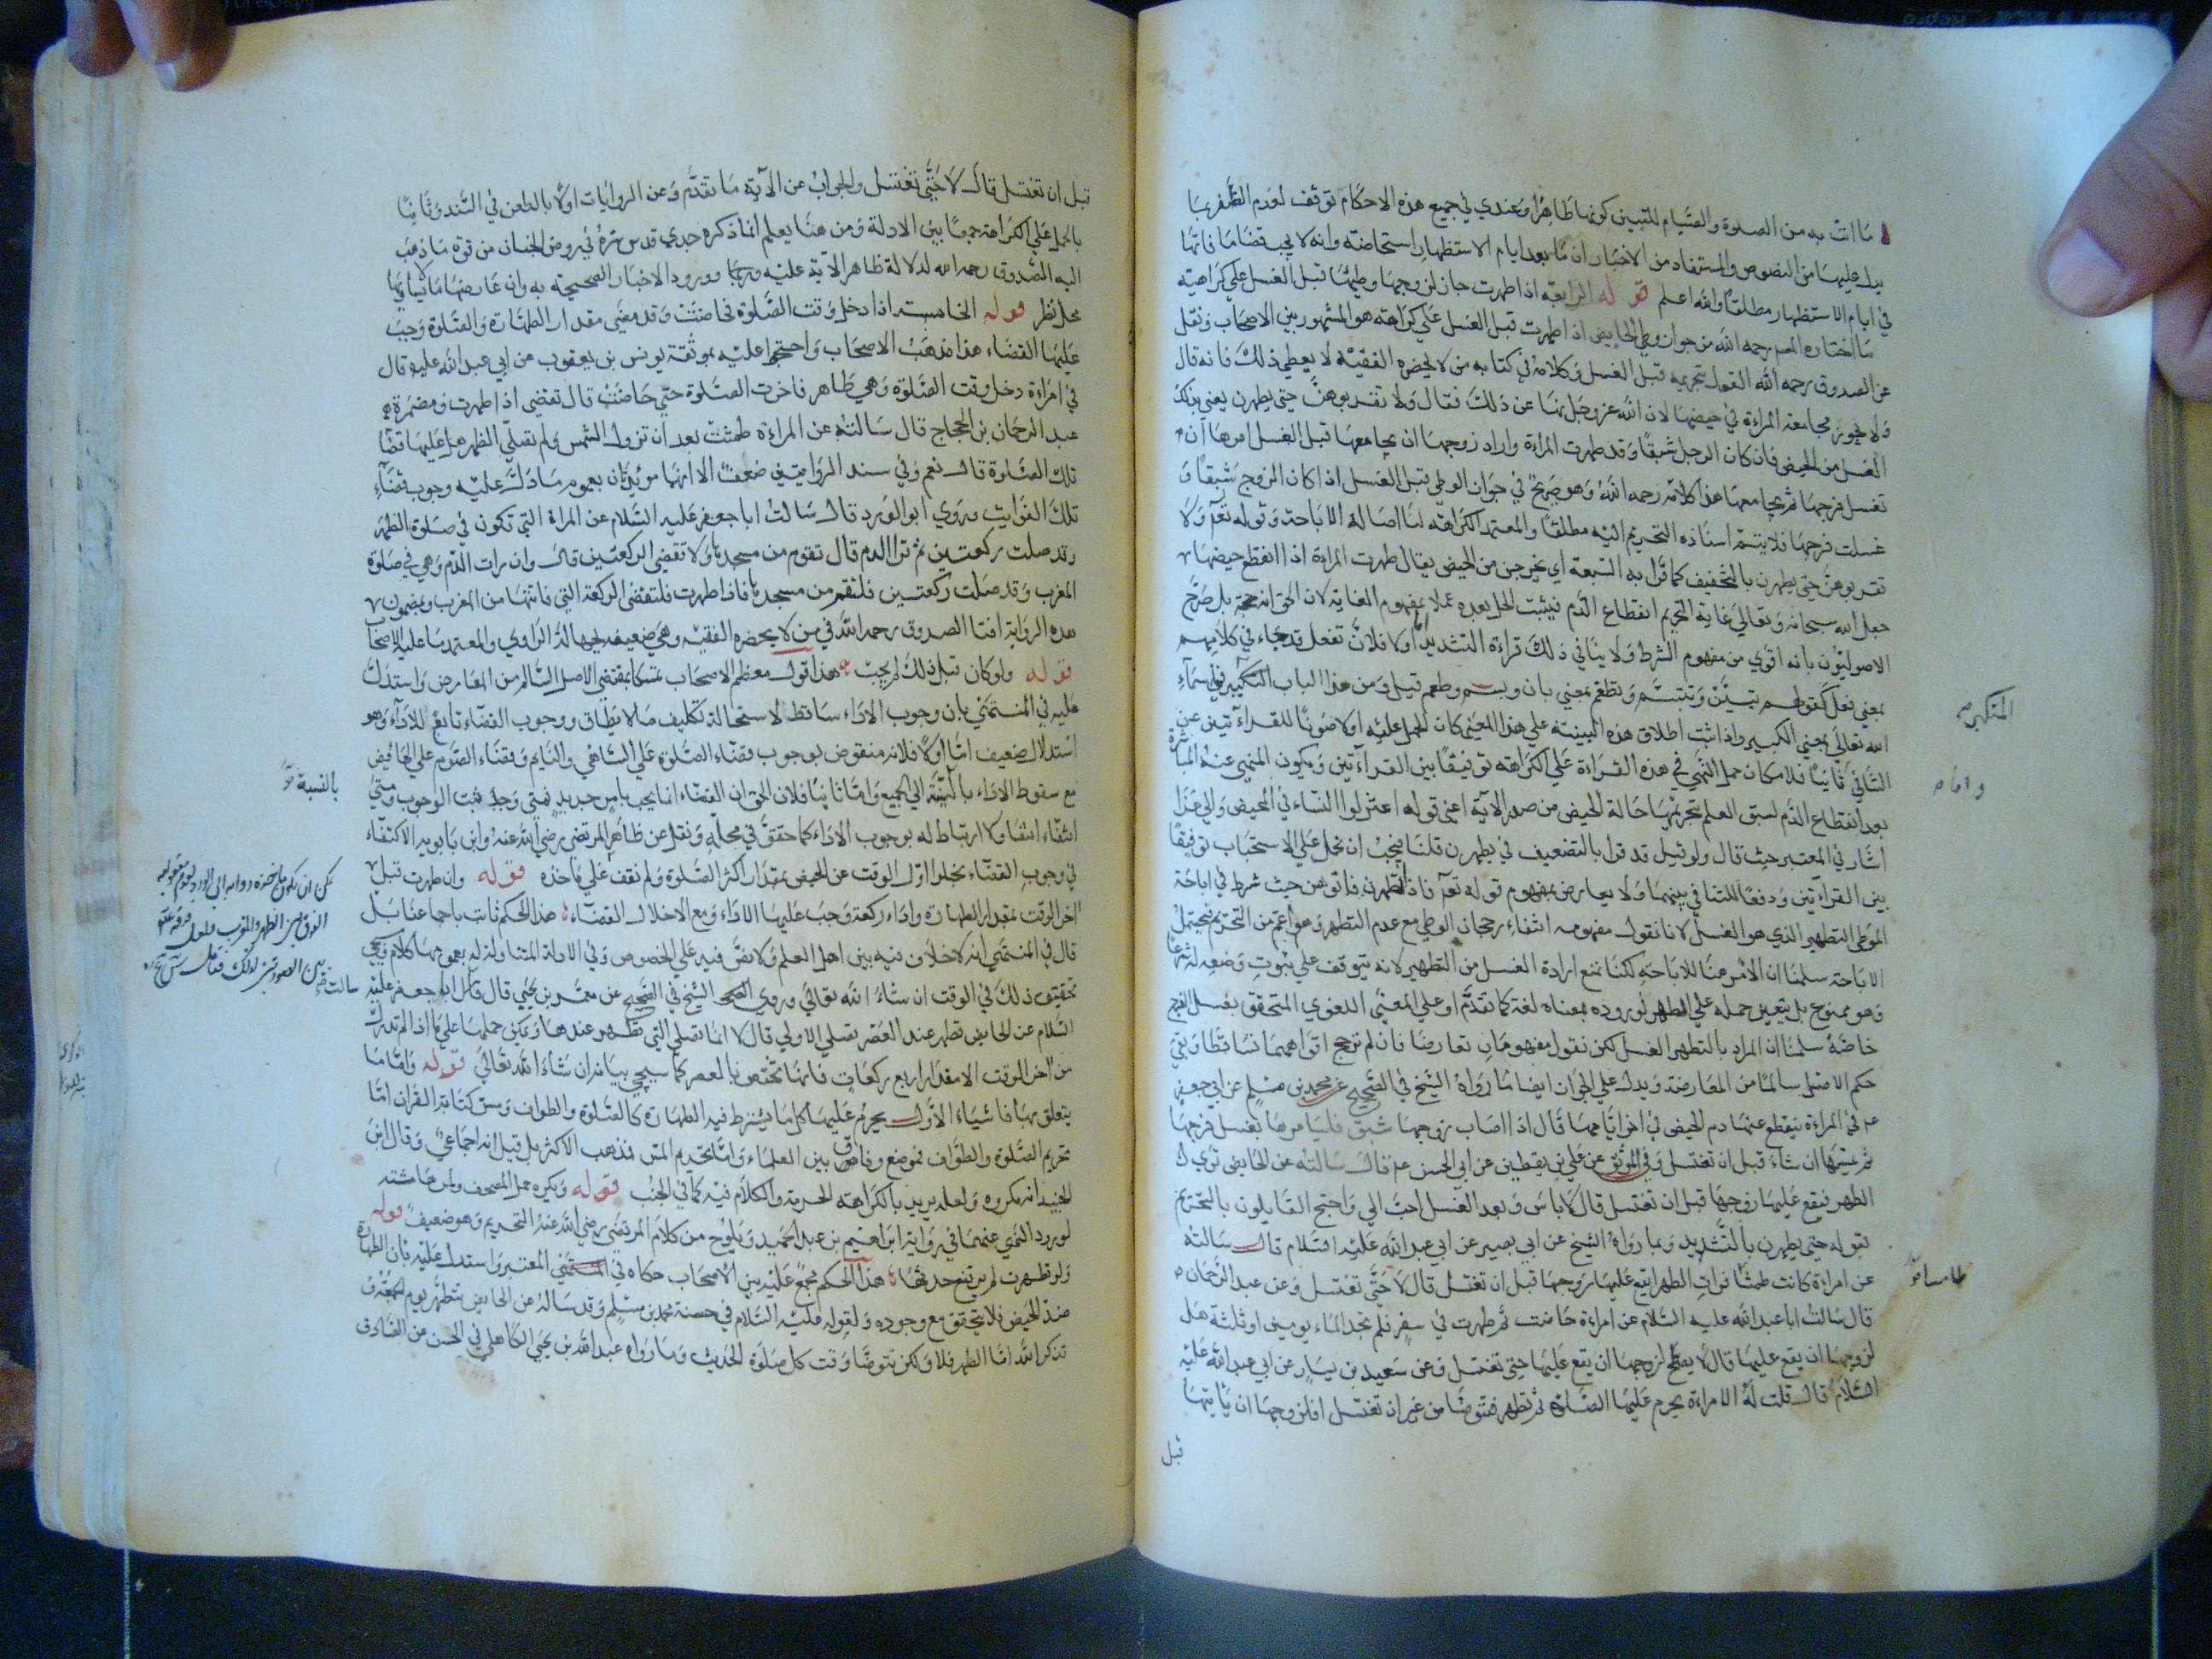 ما اتت به من الصلوة والصيام لتبيين كونها طاهرا وعندي في جميع هذه الاحكام توقف لعدم الظفر بما
يدل عليها من النصوص والمستفاد من الاخبار ان ما بعد ايام الاستظهار استحاضة وانه لا يجب قضاء ما فاتها
في ايام الاستظهار مطلقا والله اعلم قوله الرابعة اذا طهرت جاز لزوجها وطيها قبل الغسل على كراهية
ما اختاره المص رحمه الله من جواز وطي الحايض اذا طهرت قبل الغسل على كراهته هو المشهور بين الاصحاب ونقل
عن الصدوق رحمه الله القول بتحريمه قبل الغسل وكلامه في كتابه من لا يحضره الفقيه لا يعطي ذلك فانه قال
ولا يجوز مجامعة المراءة في حيضها لان الله عز وجل نها عن ذلك فقال ولا تقربوهن حتى يطهرن يعني بذلك
الغسل من الحيض فان كان الرجل شبقا وقد طهرت المراءة واراد زوجها ان يجامعها قبل الغسل امرها ان
تغسل فرجها ثم يجامعها هذا كلامه رحمه الله وهو صريح في جواز الوطي قبل الغسل اذا كان الزوج شبقا و
غسلت فرجها فلا يتم اسناد التحريم اليه مطلقا والمعتمد الكراهة لنا اصالة الاباحة وقوله تعم ولا
تقربوهن حتى يطهرن بالتخفيف كما قرا به السبعة اي يخرجن من الحيض يقال طهرت المراءة اذا انقطع حيضها
جعل الله سبحانه وتعالي غاية التحريم انقطاع الدم فيثبت الحل بعده عملا بمفهوم الغاية لان الحق انه حجة بل صرح
الاصوليون بانه اقوى من مفهوم الشرط ولا ينافي ذلك قراءة التشديد اما اولا فلان تفعل قد جاء في كلامهم
بمعنى فعل كقولهم تبين وتبسم وتطعم بمعنى بان وبسم وطعم قيل ومن هذا الباب المتكبر في اسماء
الله تعالي بمعنى الكبير واذا ثبت اطلاق هذه البنية على هذا المعنى كان الحمل عليه اولا صونا للقراءتين عن
التنافي ثانيا فلامكان حمل النهي في هذه القراءة على الكراهة توفيقا بين القراءتين ويكون المنهي عنه المباشرة
بعد انقطاع الدم لسبق العلم بتحريمها حالة الحيض من صدر الاية اعنى قوله اعتزلوا النساء في المحيض والي هذا
اشار في المعتبر حيث قال ولو قيل قد قرا بالتضعيف في يطهرن قلنا فيجب ان يحمل على الاستحباب توفيقا
بين القراءتين ودفعا للتنافي بينهما ولا يعارض بمفهوم قوله تعم فاذا تطهرن فاتوهن حيث شرط في اباحة
الوطي التطهير الذي هو الغسل لانا نقول مفهومه انتفاء رجحان الوطي مع عدم التطهر وهو اعم من التحريم فيحتمل
الاباحة سلمنا ان الامر هنا للاباحة لكنا نمنع ارادة الغسل من التطهير لانه يتوقف على ثبوت وضعه له شرعا
وهو ممنوع بل يتعين حمله على الطهر لوروده بمعناه لغة كما تقدم او على المعنى اللغوي المتحقق بغسل الفرج
خاصة سلمنا ان المراد بالتطهر الغسل لكن نقول مفهومان تعارضا فان لم نرجح اقواهما تساقطا وبقي
حكم الاصل سالما من المعارضة ويدل على الجواز ايضا ما رواه الشيخ في الصحيح عن محمد بن مسلم عن ابي جعفر
عم في المراءة ينقطع عنها دم الحيض في اخر ايامها قال اذا اصاب زوجها شبق فليامرها بغسل فرجها
ثم يمسها ان شاء قبل ان تغتسل وفي الموثق عن علي بن يقطين عن ابي الحسن عم قال سالته عن الحايض ترى
الطهر فيقع عليها زوجها قبل ان تغتسل قال لا باس وبعد الغسل احب الي واحتج القايلون بالتحريم
بقوله حتى يطهرن بالتشديد وبما رواه الشيخ عن ابي بصير عن ابي عبد الله عليه السلام قال سالته
عن امراءة كانت طمثا فرات الطهر ايقع عليها زوجها قبل ان تغتسل قال لا حتى تغتسل وعن عبد الرحمان
قال سالت ابا عبد الله عليه السلام عن امراءة حاضت ثم طهرت في سفر فلم تجد الماء يومين او ثلثة هل
لزوجها ان يقع عليها قال لا يصلح لزوجها ان يقع عليها حتى تغتسل وعن سعيد بن يسار عن ابي عبد الله عليه
السلام قال قلت له الامراءة يحرم عليها الصلوة ثم تطهر فتوضا من غير ان تغتسل افلزوجها ان ياتيها
قبل
المتكبر
واما
قبل ان تغتسل قال لا حتى تغتسل والجواب عن الاية ما تقدم وعن الروايات اولا بالطعن في السند وثانيا
بالحمل على الكراهة جمعا بين الادلة ومن هنا يعلم انما ذكره جدي قدس سره في روض الجنان من قوة ما ذهب
اليه الصدوق رحمه الله لدلالة ظاهر الاية عليه وورود الاخبار الصحيحة به وان عارضها ما لا يساويها
محل نظر قوله الخامسة اذا دخل وقت الصلوة فحاضت وقد مضى مقدار الطهارة والصلوة وجب
عليها القضاء هذا مذهب الاصحاب واحتجوا عليه بموثقة يونس بن يعقوب عن ابي عبد الله عليه قال
في امراءة دخل وقت الصلوة وهي طاهر فاخرت الصلوة حتى حاضت قال تقضي اذا طهرت ومضمرة
عبد الرحمان بن الحجاج قال سالته عن المراءة طمثت بعد ان تزول الشمس ولم تصلي الظهر هل عليها قضا
تلك الصلوة قال نعم وفي سند الروايتين ضعف الا انهما مؤيدتان بعموم ما دل عليه وجوب قضاء
تلك الفوايت وروى ابو الورد قال سالت ابا جعفر عليه السلام عن المراة التي تكون في صلوة الظهر
وقد صلت ركعتين ثم ترا الدم قال تقوم من مسجدها ولا تقضي الركعتين قال وان رات الدم وهي في صلوة
المغرب وقد صلت ركعتين فلتقم من مسجدها فاذا طهرت فلتقضى الركعة التي فاتتها من المغرب وبمضمون
هذه الرواية افتا الصدوق رحمه الله في من لا يحضره الفقيه وهي ضعيفة بجهالة الراوي والمعتمد ما عليه الاصحاب
قوله ولو كان قبل ذلك لم يجب هذا قول معظم الاصحاب تمسكا بمقتضى الاصل السالم من المعارض واستدل
عليه في المنتهى بان وجوب الاداء ساقط لاستحالة تكليف ما لا يطاق ووجوب القضاء تابع للاداء وهو
استدلال ضعيف اما اولا فلانه منقوض بوجوب قضاء الصلوة على الساهي والنايم وقضاء الصوم على الحايض
مع سقوط الاداء بالنسبة الي الجميع واما ثانيا فلان الحق ان القضاء انما يجب بامر جديد فمتى وجد ثبت الوجوب ومتى
انتفاء انتفا ولا ارتباط له بوجوب الاداء كما حقق في محله ونقل عن ظاهر المرتضى رضي الله عنه وابن بابويه الاكتفاء
في وجوب القضاء بخلوا اول الوقت عن الحيض بمقدار اكثر الصلوة ولم نقف على ماخذه قوله وان طهرت قبل
اخر الوقت بمقدار الطهارة واداء ركعة وجب عليها الاداء ومع الاخلال القضاء هذا الحكم ثابت باجماعنا بل
قال في المنتهى انه لا خلاف فيه بين اهل العلم ولا نص فيه على الخصوص وفي الادلة المتناولة له بعمومها كلام سيجي
تحقيق ذلك في الوقت ان شاء الله تعالي وروى الشيخ في الصحيح عن معمر بن يحيى قال سالت ابا جعفر عليه
السلام عن الحايض تطهر عند العصر تصلي الاولى قال لا انما تصلي التي تطهر عندها ويمكن حملها على ما اذا لم تدرك
من اخر الوقت الا مقدار اربع ركعات فانها تختص بالعصر كما سيجي بيانه ان شاء الله تعالي قوله واما ما
يتعلق بها فاشياء الاول يحرم عليها كل ما يشترط فيه الطهارة كالصلوة والطواف ومس كتابة القران اما
تحريم الصلوة والطواف فموضع وفاق بين العلماء واما تحريم المس فذهب الاكثر بل قيل انه اجماعي وقال ابن
الجنيد انه مكروه ولعله يريد بالكراهة الحرمة والكلام فيه كما في الجنب قوله ويكره حمل المصحف ولمس هامشه
لورود النهي عنهما في رواية ابراهيم بن عبد الحميد ويلوح من كلام المرتضى رضي الله عنه التحريم وهو ضعيف قوله
ولو تطهرت لم يرتفع حدثها هذا الحكم مجمع عليه بين الاصحاب حكاه في المعتبر واستدل عليه بان الطهارة
ضد الحيض فلا يتحقق مع وجوده ولقوله عليه السلام في حسنة محمد بن مسلم وقد ساله عن الحايض تتطهر يوم الجمعة و
تذكر الله اما الطهر فلا ولكن تتوضا وقت كل صلوة الحديث وما رواه عبد الله بن يحيى الكاهلي في الحسن عن الصادق
بالنسبة